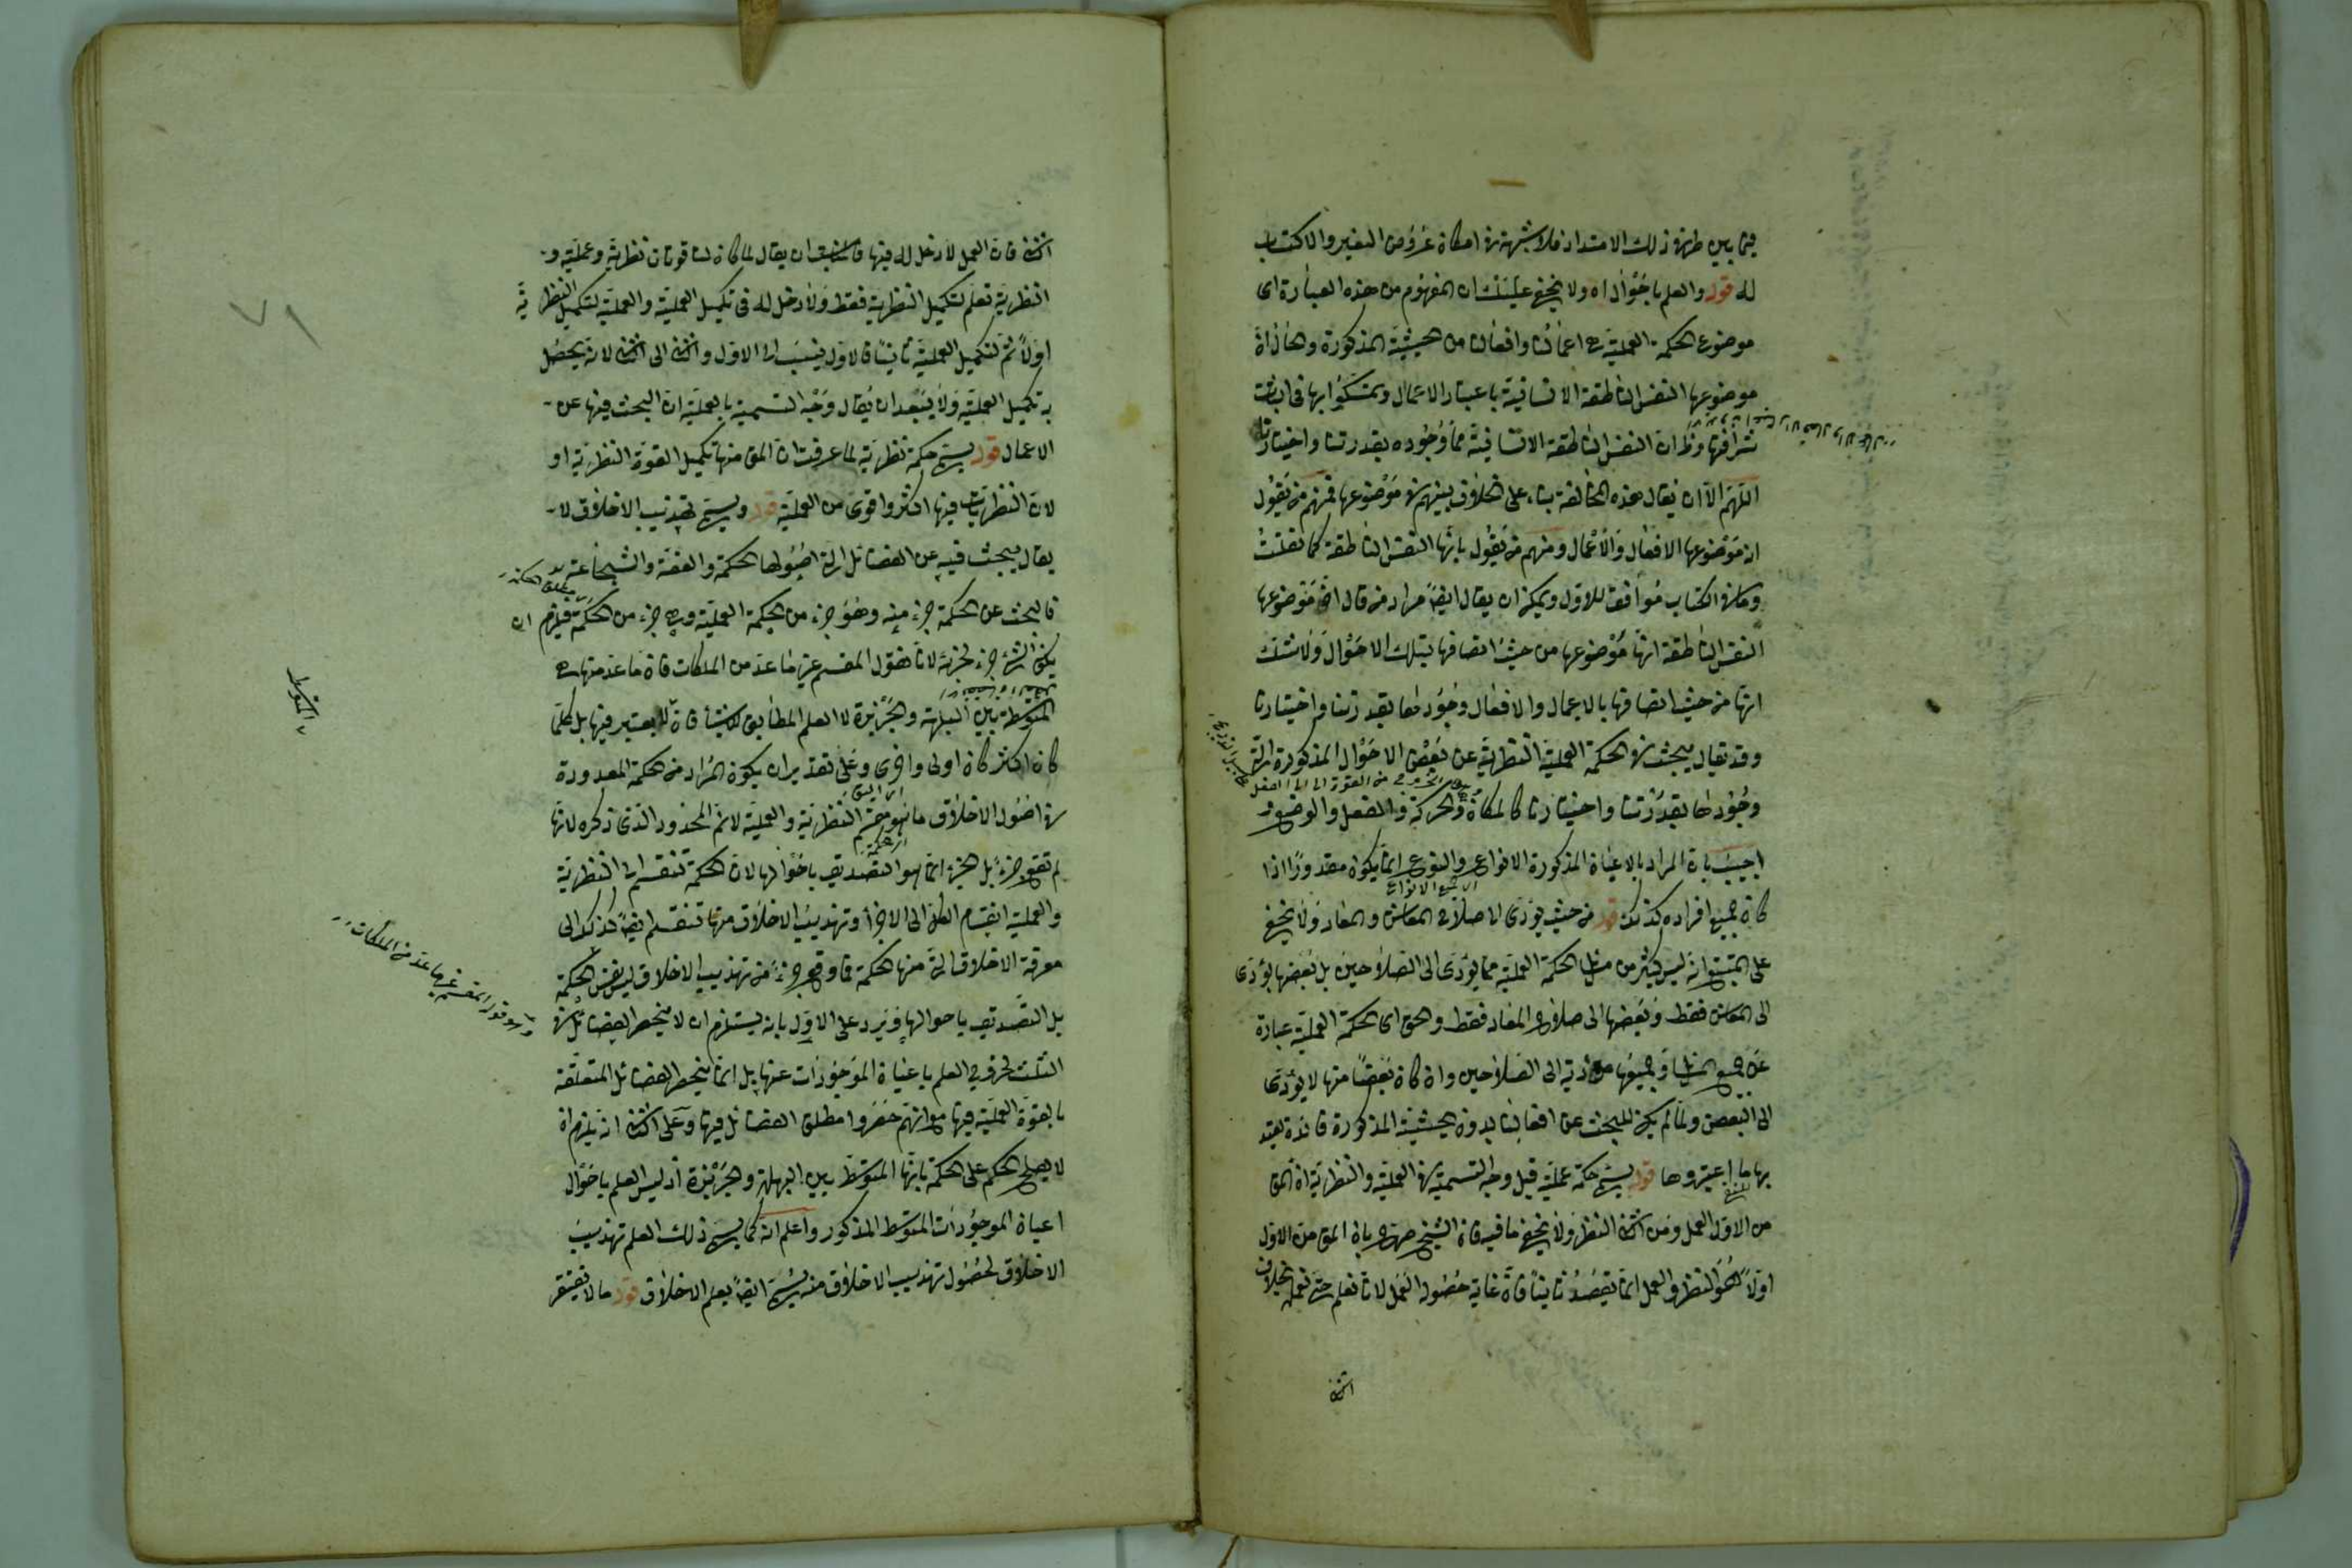 فيما بين طرفي ذلك الامتداد فلا شبهة في امكان عروض التغير والاكتساب
له قوله والعلم باحوال اه ولا يخفى عليك ان المفهوم من هذه العبارة اى
موضوع الحكمة العملية هى اعمالنا وافعالنا من الحيثية المذكورة والحال ان
موضوعها النفس الناطقة الانسانية باعتبار الاعمال وتمسكوا بها فى اثبات
شرافتها وظ ان النفس الناطقة الانسانية مما وجوده بقدرتنا واختيارنا
اللهم الا ان يقال هذه المخالفة بناء على اختلاف بينهم في موضوعها فمنهم من يقول
ان موضوعها الافعال والاعمال ومنهم من يقول بانها النفس الناطقة كما نقلت
وما في الكتاب موافقا للاول ويمكن ان يقال ايضا مراد من قال ان موضوعها
النفس الناطقة انها موضوعها من حيث اتصافها بتلك الاحوال ولا شك
انها من حيث اتصافها بالاعمال والافعال وجودها بقدرتنا واختيارنا
وقد يقال يبحث في الحكمة العملية النظرية عن بعض الاحوال المذكورة التى
وجودها بقدرتنا واختيارنا كالمكان والحركة والفعل والوضع
اجيب بان المراد بالاعيان المذكورة الانواع والنوع انما يكون مقدورا اذا
كان جميع افراده كذلك قوله من حيث يؤدى الى صلاح المعاش والمعاد ولا يخفى
على المتتبع انه ليس كثير من مسائل الحكمة العملية مما يؤدى الى الصلاحين بل بعضها يؤدى
الى المعاش فقط وبعضها الى صلاح المعاد فقط والحق ان الحكمة العملية عبارة
عن جميع المسائل وجميعها مؤدية الى الصلاحين وان كان بعضا منها لا يؤدى
الى البعض ولما لم يكن للبحث عن افعالنا بدون الحيثية المذكورة فائدة يعتد
بها ما اعتبروها قوله يسمى حكمة عملية قيل وجه التسمية في العملية والنظرية ان المق
من الاول العمل ومن الثانى النظر ولا يخفى ما فيه فان الشيخ صرح بان المق من الاول
اولا هو النظر والعمل انما يقصد ثانيا فان غاية حصوله العمل لانا نعلم حتى نعمل بخلاف
الثانى
الثانى فان العمل لا دخل له فيها فالمناسب ان يقال لما كان لنا قوتان نظرية وعملية و
النظرية تعلم لتكميل النظرية فقط ولا دخل له فى تكميل العملية والعملية لتكميل النظرية
اولا ثم لتكميل العملية ثانيا فالاول ينسب الى الاول والثانى الى الثانى لانه يحصل
به تكميل العملية ولا يبعد ان يقال وجه التسمية بالعملية ان البحث فيها عن
الاعمال قوله يسمى حكمة نظرية لما عرفت ان المق منها تكميل القوة النظرية او
لان النظريات فيها اكثر واقوى من العملية قوله ويسمى تهذيب الاخلاق لا
يقال يبحث فيه عن الفضائل التى اصولها الحكمة والعفة والشجاعة
فالبحث عن الحكمة جزء منه وهو جزء من الحكمة العملية وهى جزء من الحكمة فيلزم ان
يكون الشئ جزء لجزئه لانا نقول المقسم غير ما عد من الملكات فان ما عد منها هى
المتوسطة بين البلاهة والجربزة لا العلم المطابق للاشياء فانه لا يعتبر فيها بل كلما
كان اكثر كان اولى واحرى وعلى تقدير ان يكون المراد من الحكمة المعدودة
في اصول الاخلاق ما هو مقسم النظرية والعملية لا نم المحذور الذى ذكره لانها
لم تقع جزء بل الجزء انما هو التصديق باحوالها لان الحكمة تنقسم الى النظرية
والعملية انقسام الكل الى الاجزاء وتهذيب الاخلاق منها تنقسم ايضا كذلك الى
معرفة الاخلاق التى منها الحكمة فما وقع جزء من تهذيب الاخلاق ليس نفس الحكمة
بل التصديق باحوالها ويرد على الاول بانه يستلزم ان لا ينحصر الفضائل في
الثلث لخروج العلم باعيان الموجودات عنها بل انما ينحصر الفضائل المتعلقة
بالقوة العملية فيها مع انهم حصروا مطلق الفضائل فيها وعلى الثانى انه يلزم ان
لا يصلح الحكم على الحكمة بانها المتوسط بين البلاهة والجربزة اذ ليس العلم باحوال
اعيان الموجودات المتوسط المذكور واعلم انه كما يسمى ذلك العلم تهذيب
الاخلاق لحصول تهذيب الاخلاق منه يسمى ايضا بعلم الاخلاق قوله ما لا يفتقر
وهو قوله المقسم غير ما عد من الملكات
٧١